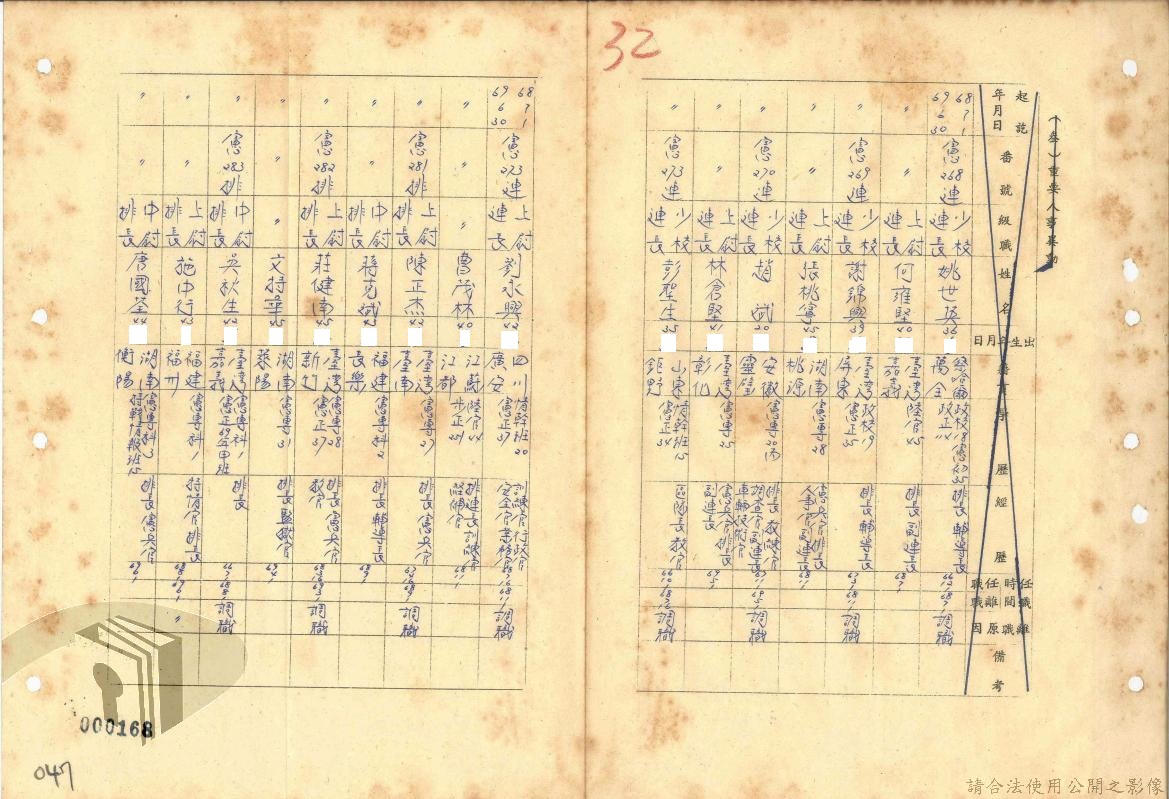 32
(叁)重要人事異動
起訖年月日
番號
級職
姓名
出生年月日
籍貫
學歷
經歷
任職時間
離職
離職原因
備考
68 7 1
69 6 30
憲268連
少校連長
姚世琺 36
察哈爾萬全
政校18 憲初35
政正14
排長 輔導長
調職
〃
〃
上尉連長
何雍堅 40
臺灣嘉義
陸官45
排長 副連長
〃
憲269連
少校連長
謝錦興 39
臺灣屏東
政校19
憲正35
排長 輔導長
調職
〃
〃
上尉連長
張桃寧 45
湖南桃源
憲專28
憲兵官排長
人事官副連長
〃
憲270連
少校連長
趙斌 20
安徽靈璧
憲專20丙
排長 教練官
調查官副連長
車輛技術官
調職
〃
〃
上尉連長
林倉堅 41
臺灣彰化
憲專25
憲兵官排長
副連長
〃
憲273連
少校連長
彭聖生 35
山東鉅野
情幹班15
憲正34
區隊長 教官
調職
68 7 1
69 6 30
憲273連
上尉連長
劉永興 42
四川廣安
情幹班20
憲正37
訓練官行政官
安全官業務官
調職
〃
〃
〃
曹茂林 40
江蘇江都
陸官44
步正251
排連長訓練官
經補官
〃
憲281排
上尉排長
陳正杰 42
臺灣臺南
憲專27
排長 憲兵官
調職
〃
〃
中尉排長
蔣克斌 42
福建長樂
憲專科2
排長 輔導長
〃
憲282排
上尉排長
莊健南 45
臺灣新竹
憲專28
憲正37
排長 憲兵官
教官
調職
〃
〃
〃
文持華 45
湖南耒陽
憲專31
排長 監獄官
〃
憲283排
中尉排長
吳秋生 42
臺灣嘉義
憲專科1
憲正69年甲班
排長
調職
〃
〃
上尉排長
施中行 43
福建福州
憲專科1
特情官 排長
〃
〃
〃
中尉排長
唐國荃 44
湖南衡陽
憲專科3
特幹情報班15
排長 憲兵官
000168
047
請合法使用公開之影像